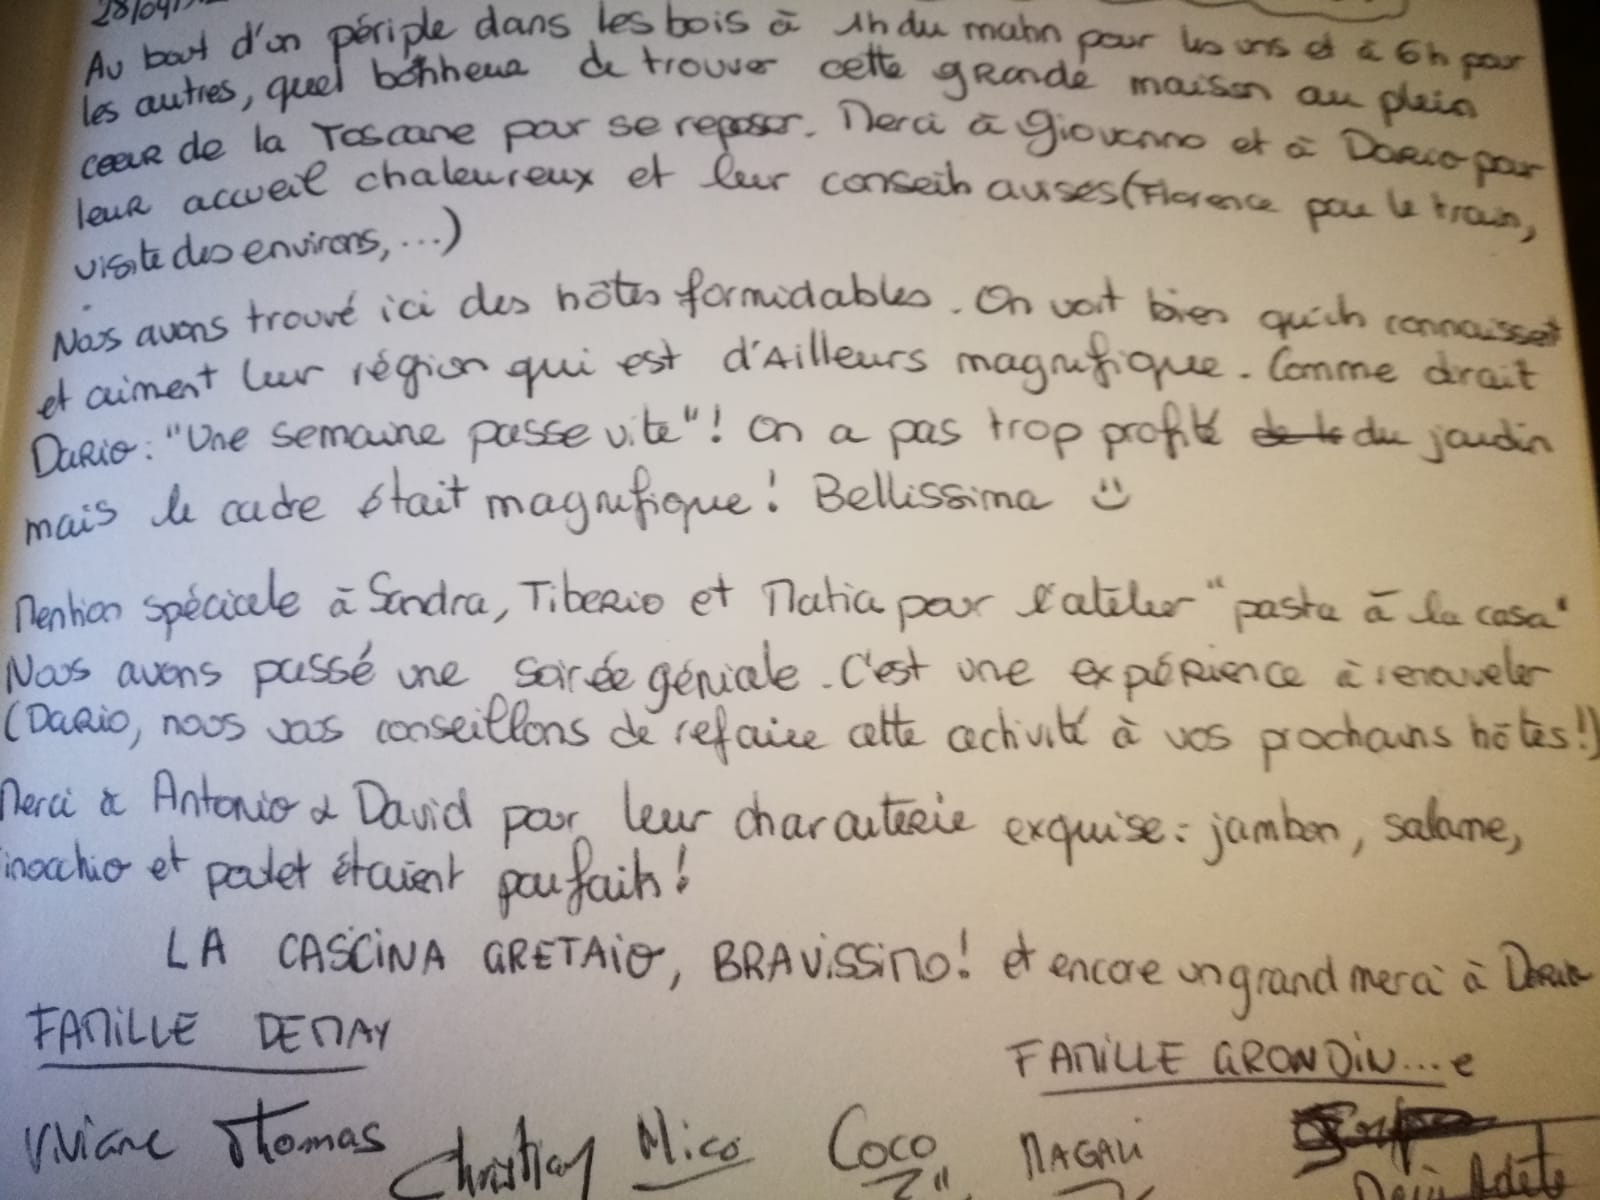 28/04/
Au bout d'un périple dans les bois à 1h du matin pour les uns et à 6h pour
les autres, quel bonheur de trouver cette grande maison au plein
coeur de la Toscane pour se reposer. Merci à Giovanno et à Dario pour
leur accueil chaleureux et leur conseils avisés (Florence pour le train,
visite des environs, ...)
Nous avons trouvé ici des hôtes formidables. On voit bien qu'ils connaissent
et aiment leur région qui est d'Ailleurs magnifique. Comme dirait
Dario : "Une semaine passe vite"! On a pas trop profité de le du jardin
mais le cadre était magnifique! Bellissima
Mention spéciale à Sandra, Tiberio et Matia pour l'atelier "pasta à la casa"
Nous avons passé une soirée géniale. C'est une expérience à renouveler
(Dario, nous vous conseillons de refaire cette activité à vos prochains hôtes!)
Merci à Antonio & David pour leur charcuterie exquise : jambon, salame,
inocchio et poulet étaient parfaits!
LA CASCINA GRETAIO, BRAVISSIMO! et encore un grand merci à Dario
FAMILLE DEMAY
FAMILLE GRONDIN...e
Viviane Thomas Christian Mico Coco MAGALI
Adèle